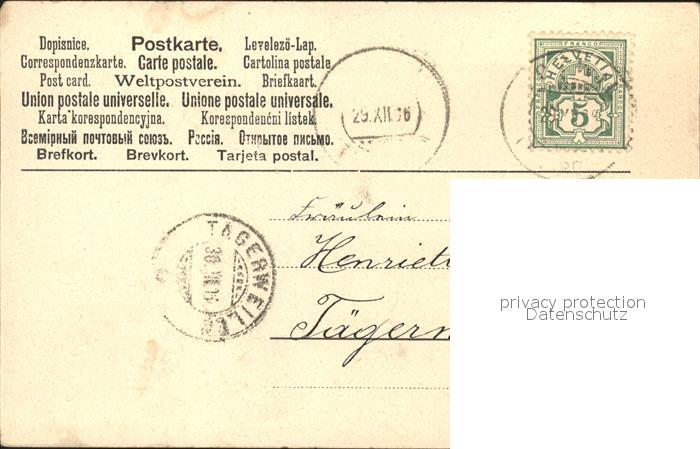 Dopisnice. Postkarte. Levelező-Lap.
Correspondenzkarte. Carte postale. Cartolina postale.
Post card. Weltpostverein. Briefkaart.
Union postale universelle. Unione postale universale.
Karta korespondencyjna. Korespondenćni lístek.
Всемірный почтовый союзъ. Россія. Открытое письмо.
Brefkort. Brevkort. Tarjeta postal.
29.XII.06
FRANCO
HELVETIA
5
TÄGERWEILEN
30.XII.06
Fräulein
Henriet
Tägerw
privacy protection
Datenschutz